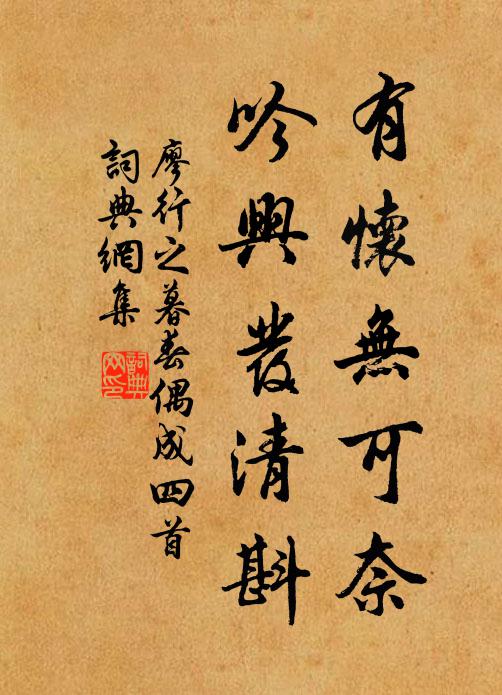 有懷無可奈
吟興發清斟
廖行之暮春偶成四首
詞典網集
詞典
網印